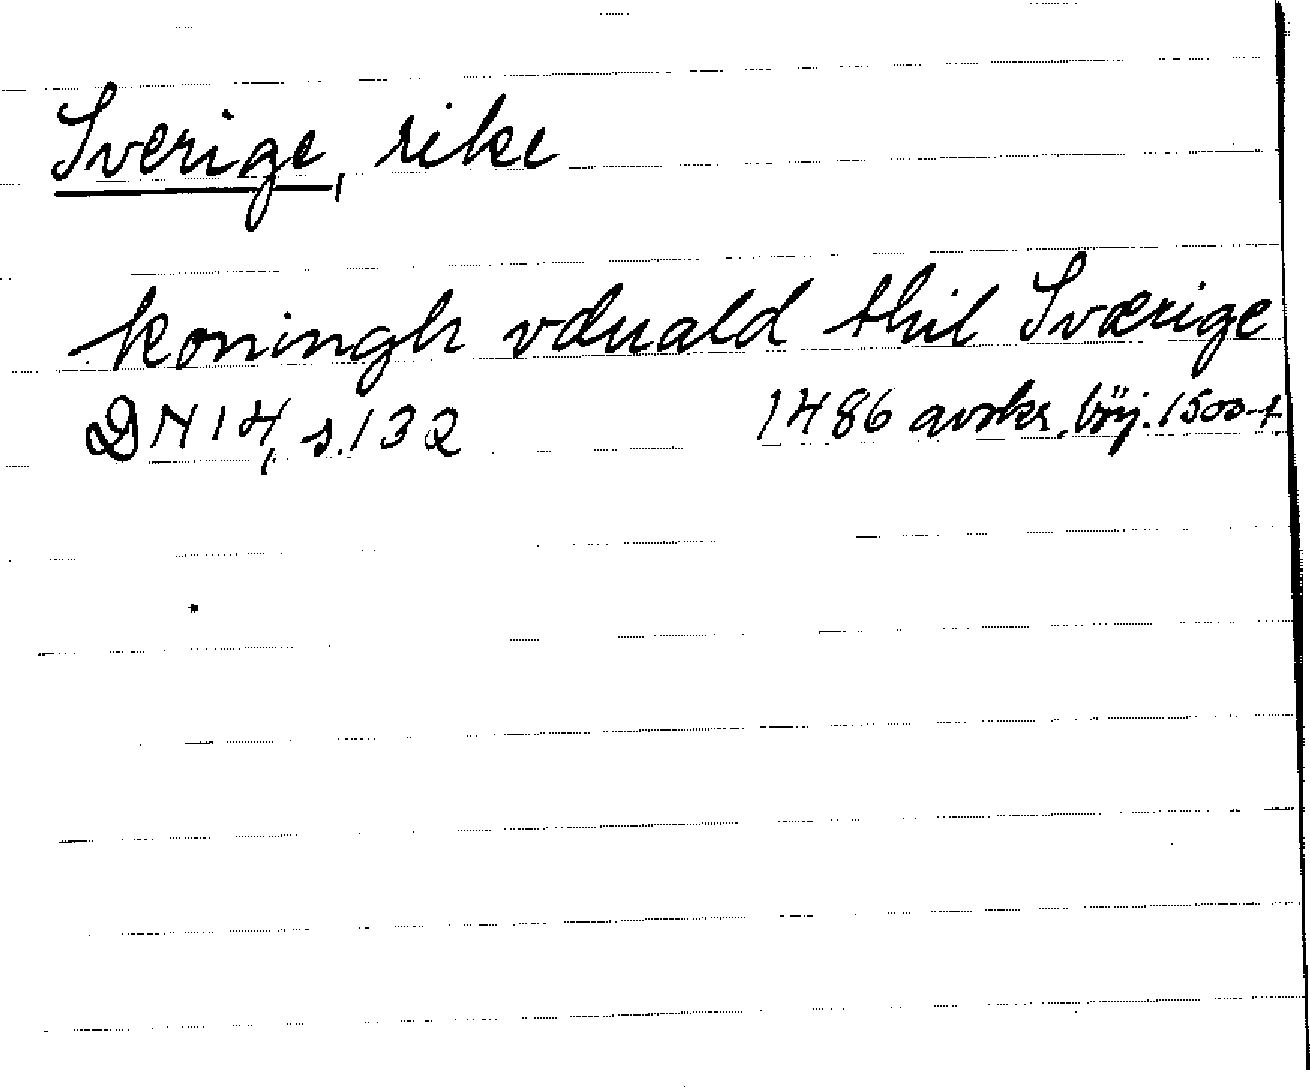 Sverige, rike
koningh vduald thil Sværige
DN 14, s. 132 1486 avskr. börj. 1500-t.